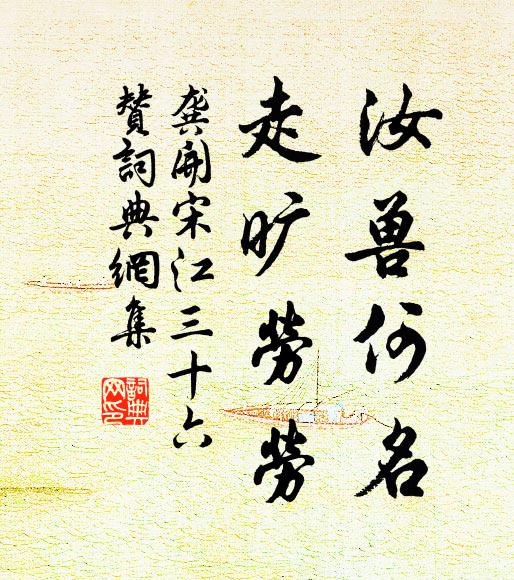 汝兽何名
走旷劳劳
龚開宋江三十六
赞詞典網集
詞典
网印